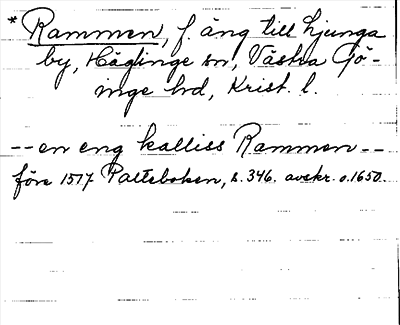 * Rammen, f. äng till Ljunga
by, Häglinge sn, Västra Gö-
inge hd, Krist. l.
-- en eng kalliss Rammen --
före 1517 Palteboken, s. 346. avskr. o. 1650.